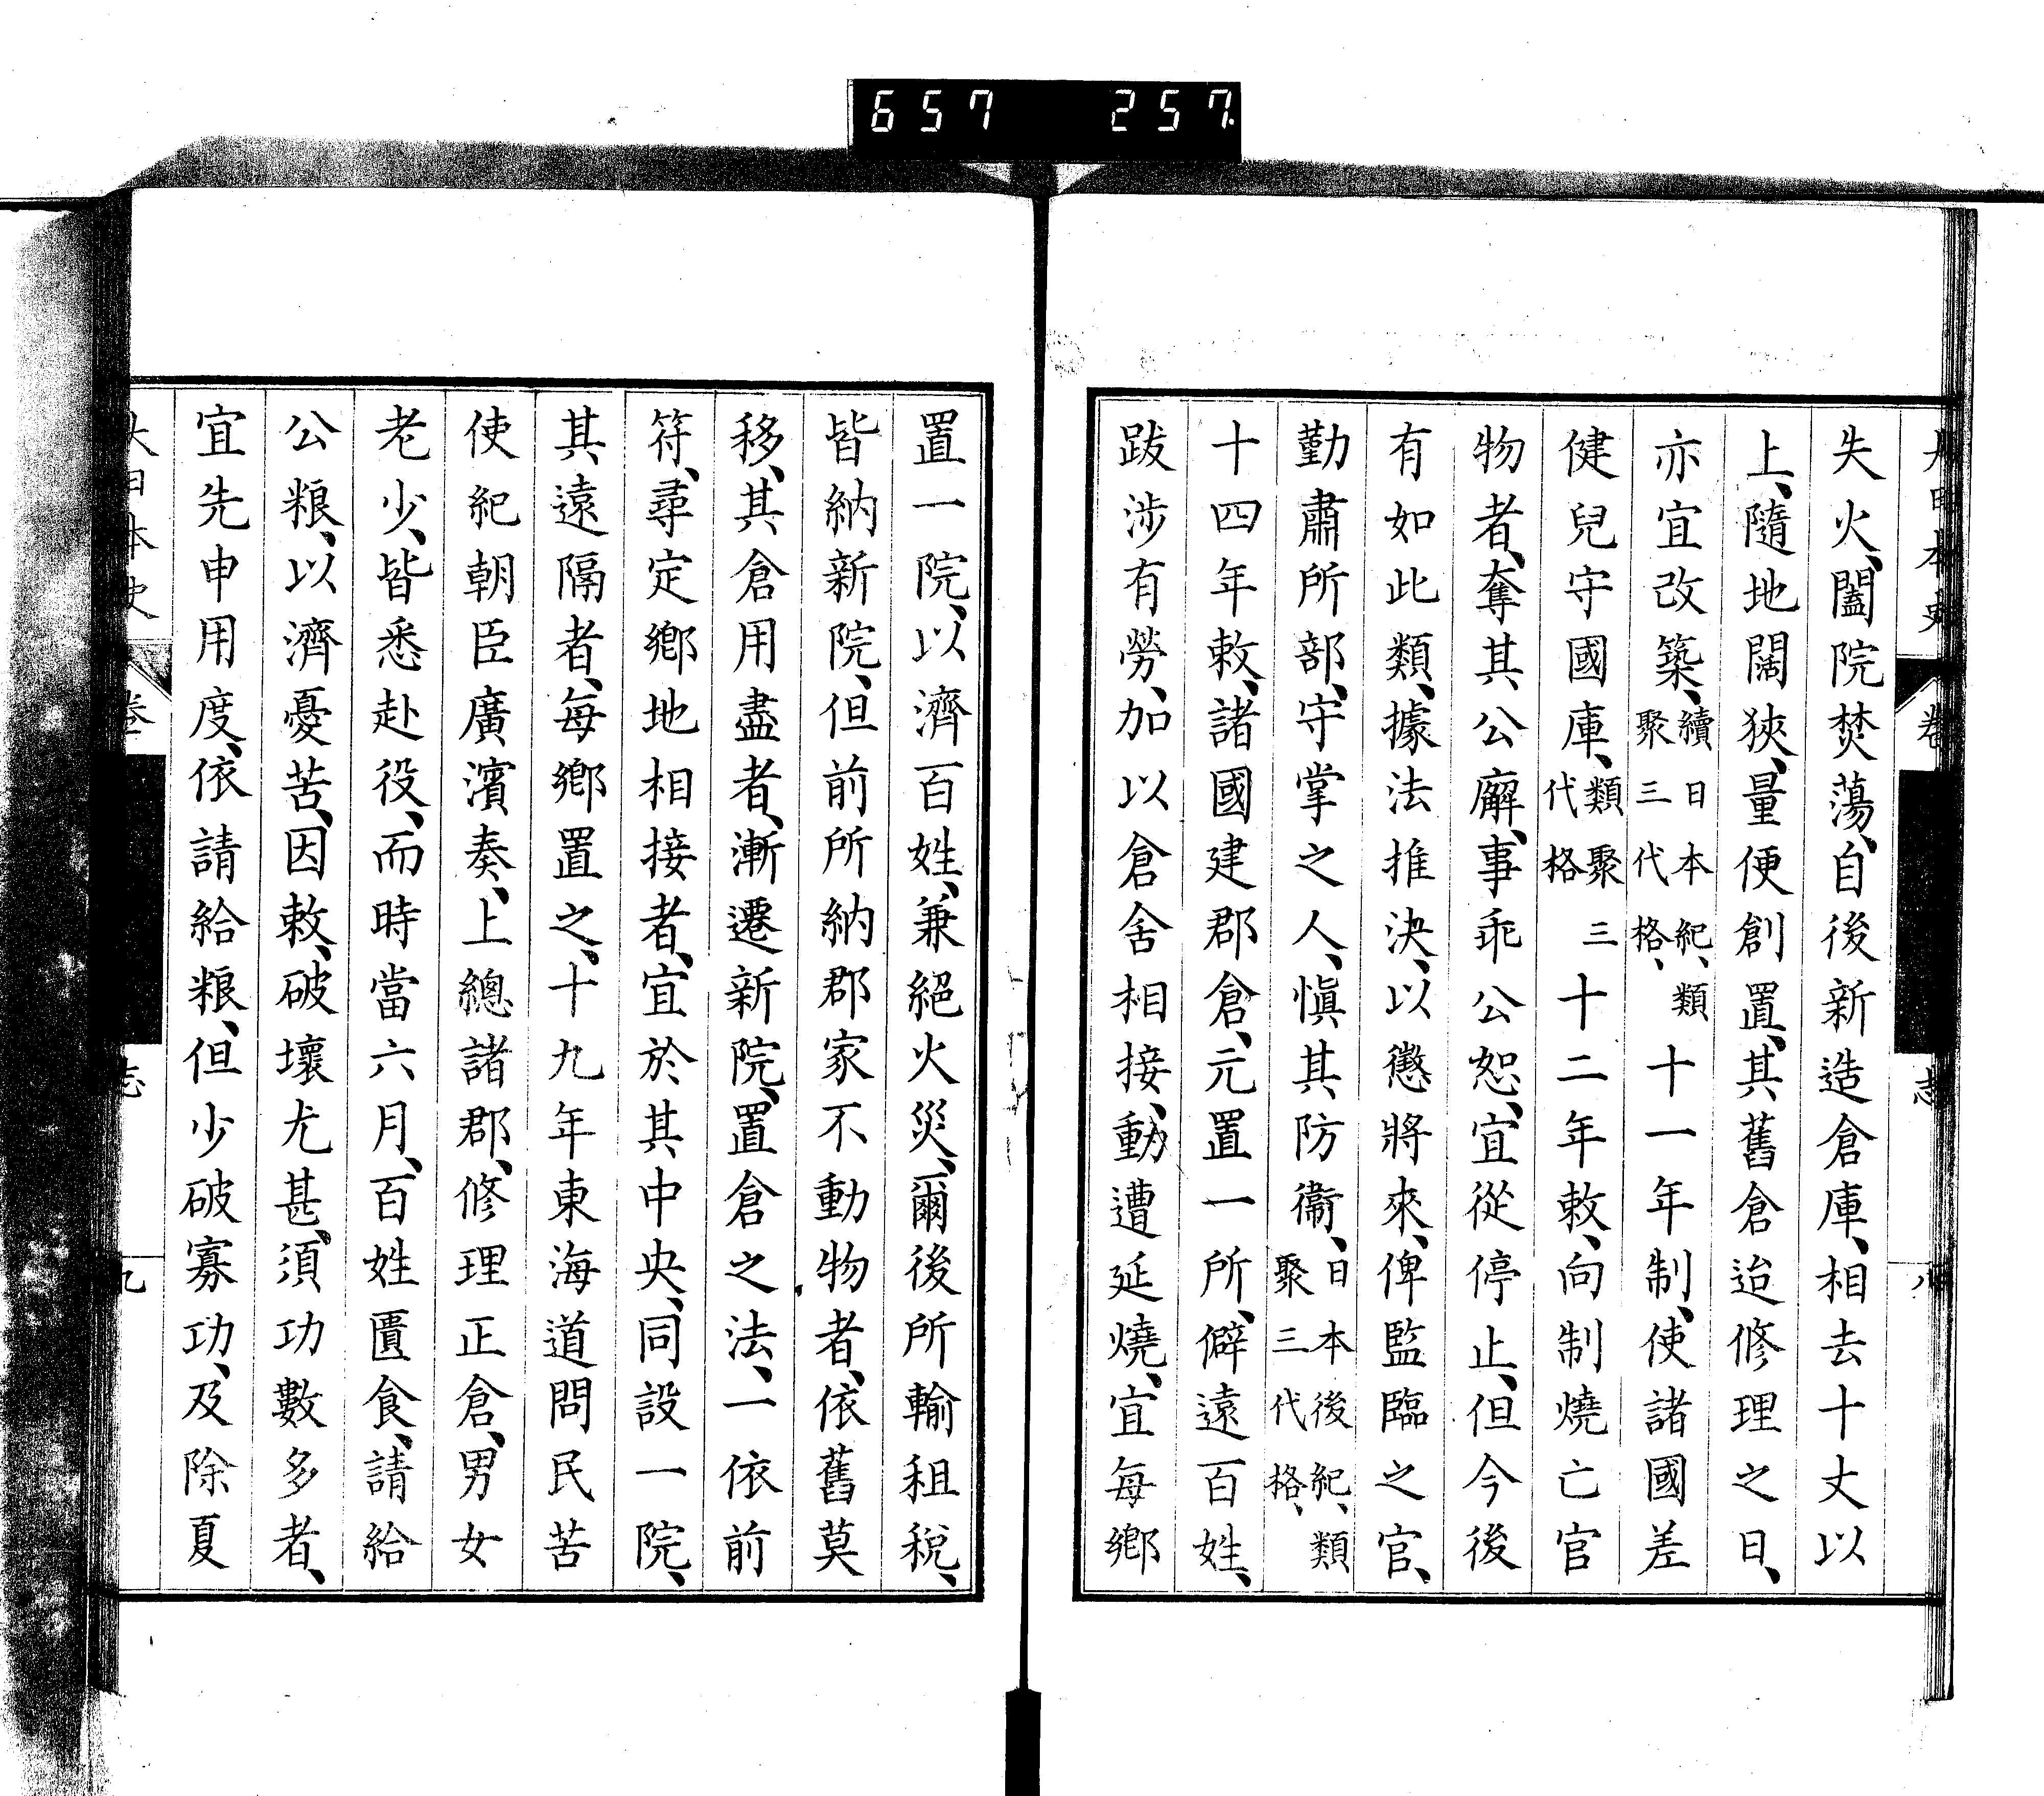 657 257
大日本史 卷 志 八
失火、闔院焚蕩、自後新造倉庫、相去十丈以
上、隨地闊狹、量便創置、其舊倉迨修理之日、
亦宜改築、續日本紀、類聚三代格、十一年制、使諸國差
健兒守國庫、類聚三代格十二年敕、向制燒亡官
物者、奪其公廨、事乖公恕、宜從停止、但今後
有如此類、據法推決、以懲將來、俾監臨之官、
勤肅所部、守掌之人、愼其防衞、日本後紀、類聚三代格、
十四年敕、諸國建郡倉、元置一所、僻遠百姓、
跋涉有勞、加以倉舍相接、動遭延燒、宜每鄉
置一院、以濟百姓、兼絕火災、爾後所輸租稅、
皆納新院、但前所納郡家不動物者、依舊莫
移、其倉用盡者、漸遷新院、置倉之法、一依前
符、尋定鄉地相接者、宜於其中央、同設一院、
其遠隔者、每鄉置之、十九年東海道問民苦
使紀朝臣廣濱奏、上總諸郡、修理正倉、男女
老少、皆悉赴役、而時當六月、百姓匱食、請給
公粮、以濟憂苦、因敕、破壞尤甚、須功數多者、
宜先申用度、依請給粮、但少破寡功、及除夏
大日本史 卷 志 九